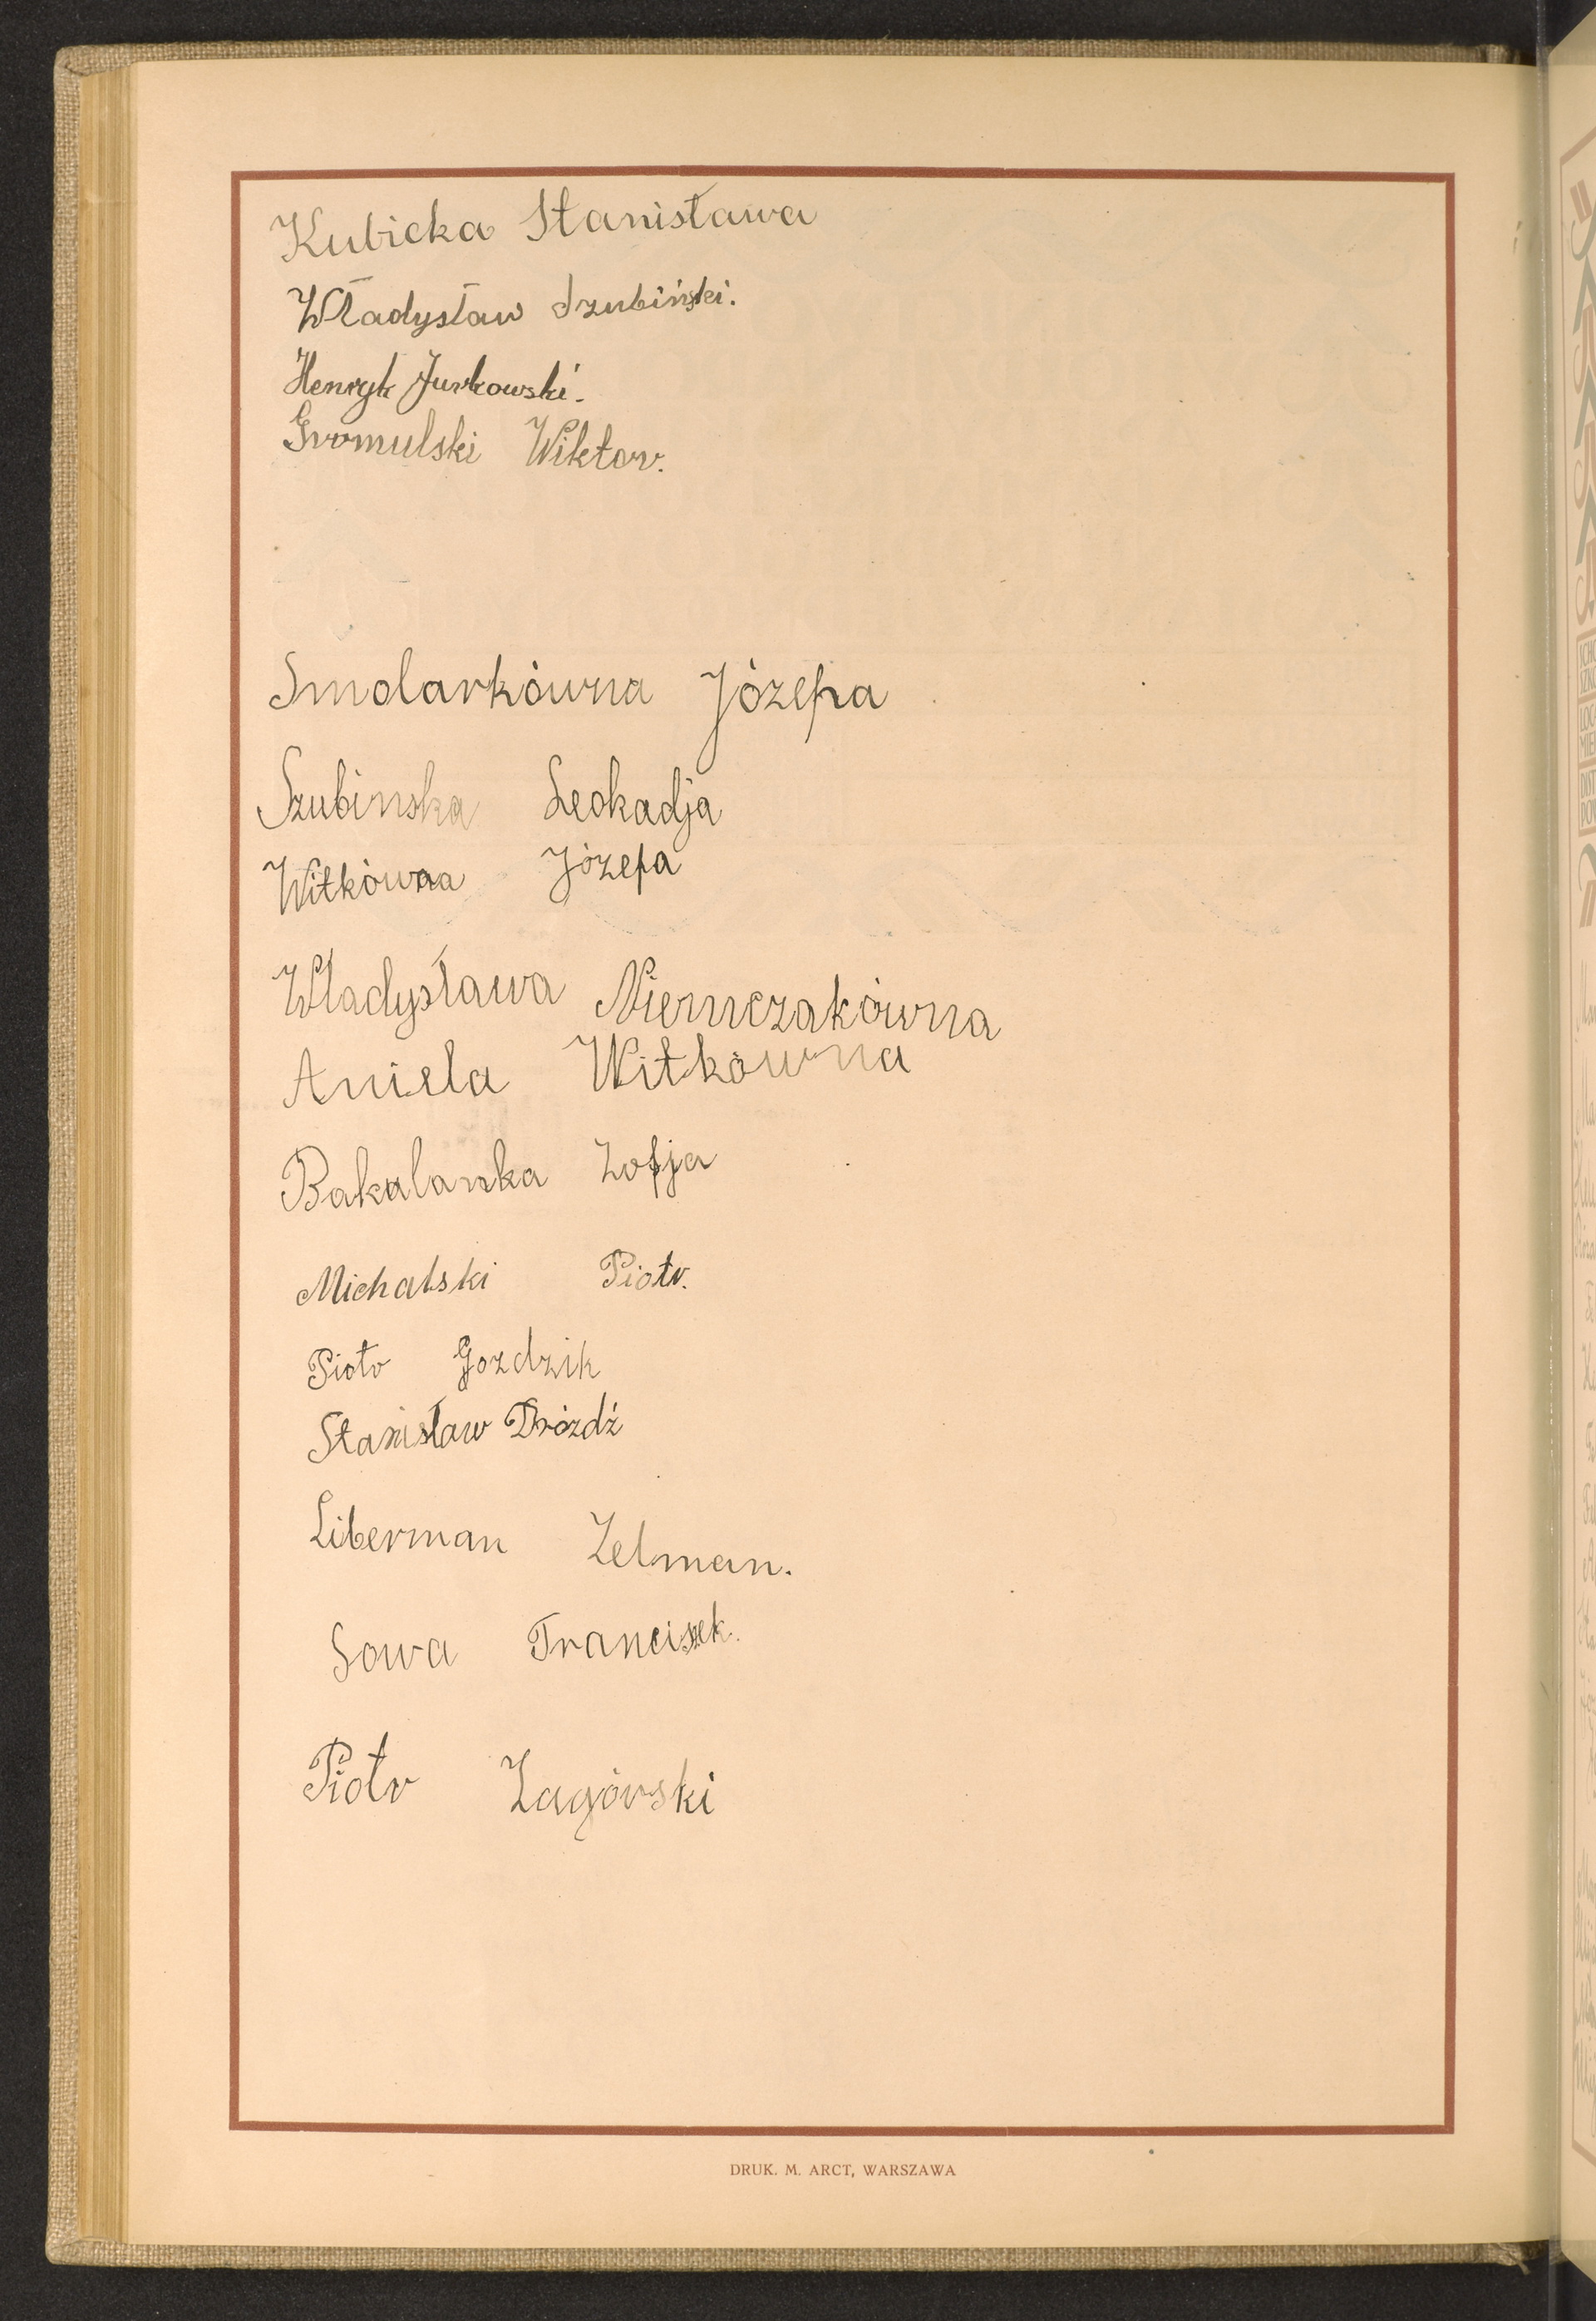 Kubicka Stanisława
Władysław Szubiński.
Henryk Jurkowski.
Gromulski Wiktor.
Smolarkówna Józefa
Szubinska Leokadja
Witkówna Józefa
Władysława Niemczakówna
Aniela Witkówna
Bakalarska Zofja
Michalski Piotr.
Piotr Gozdzik
Stanisław Dróżdż
Liberman Zelman.
Sowa Franciszek.
Piotr Zagórski
DRUK. M. ARCT, WARSZAWA